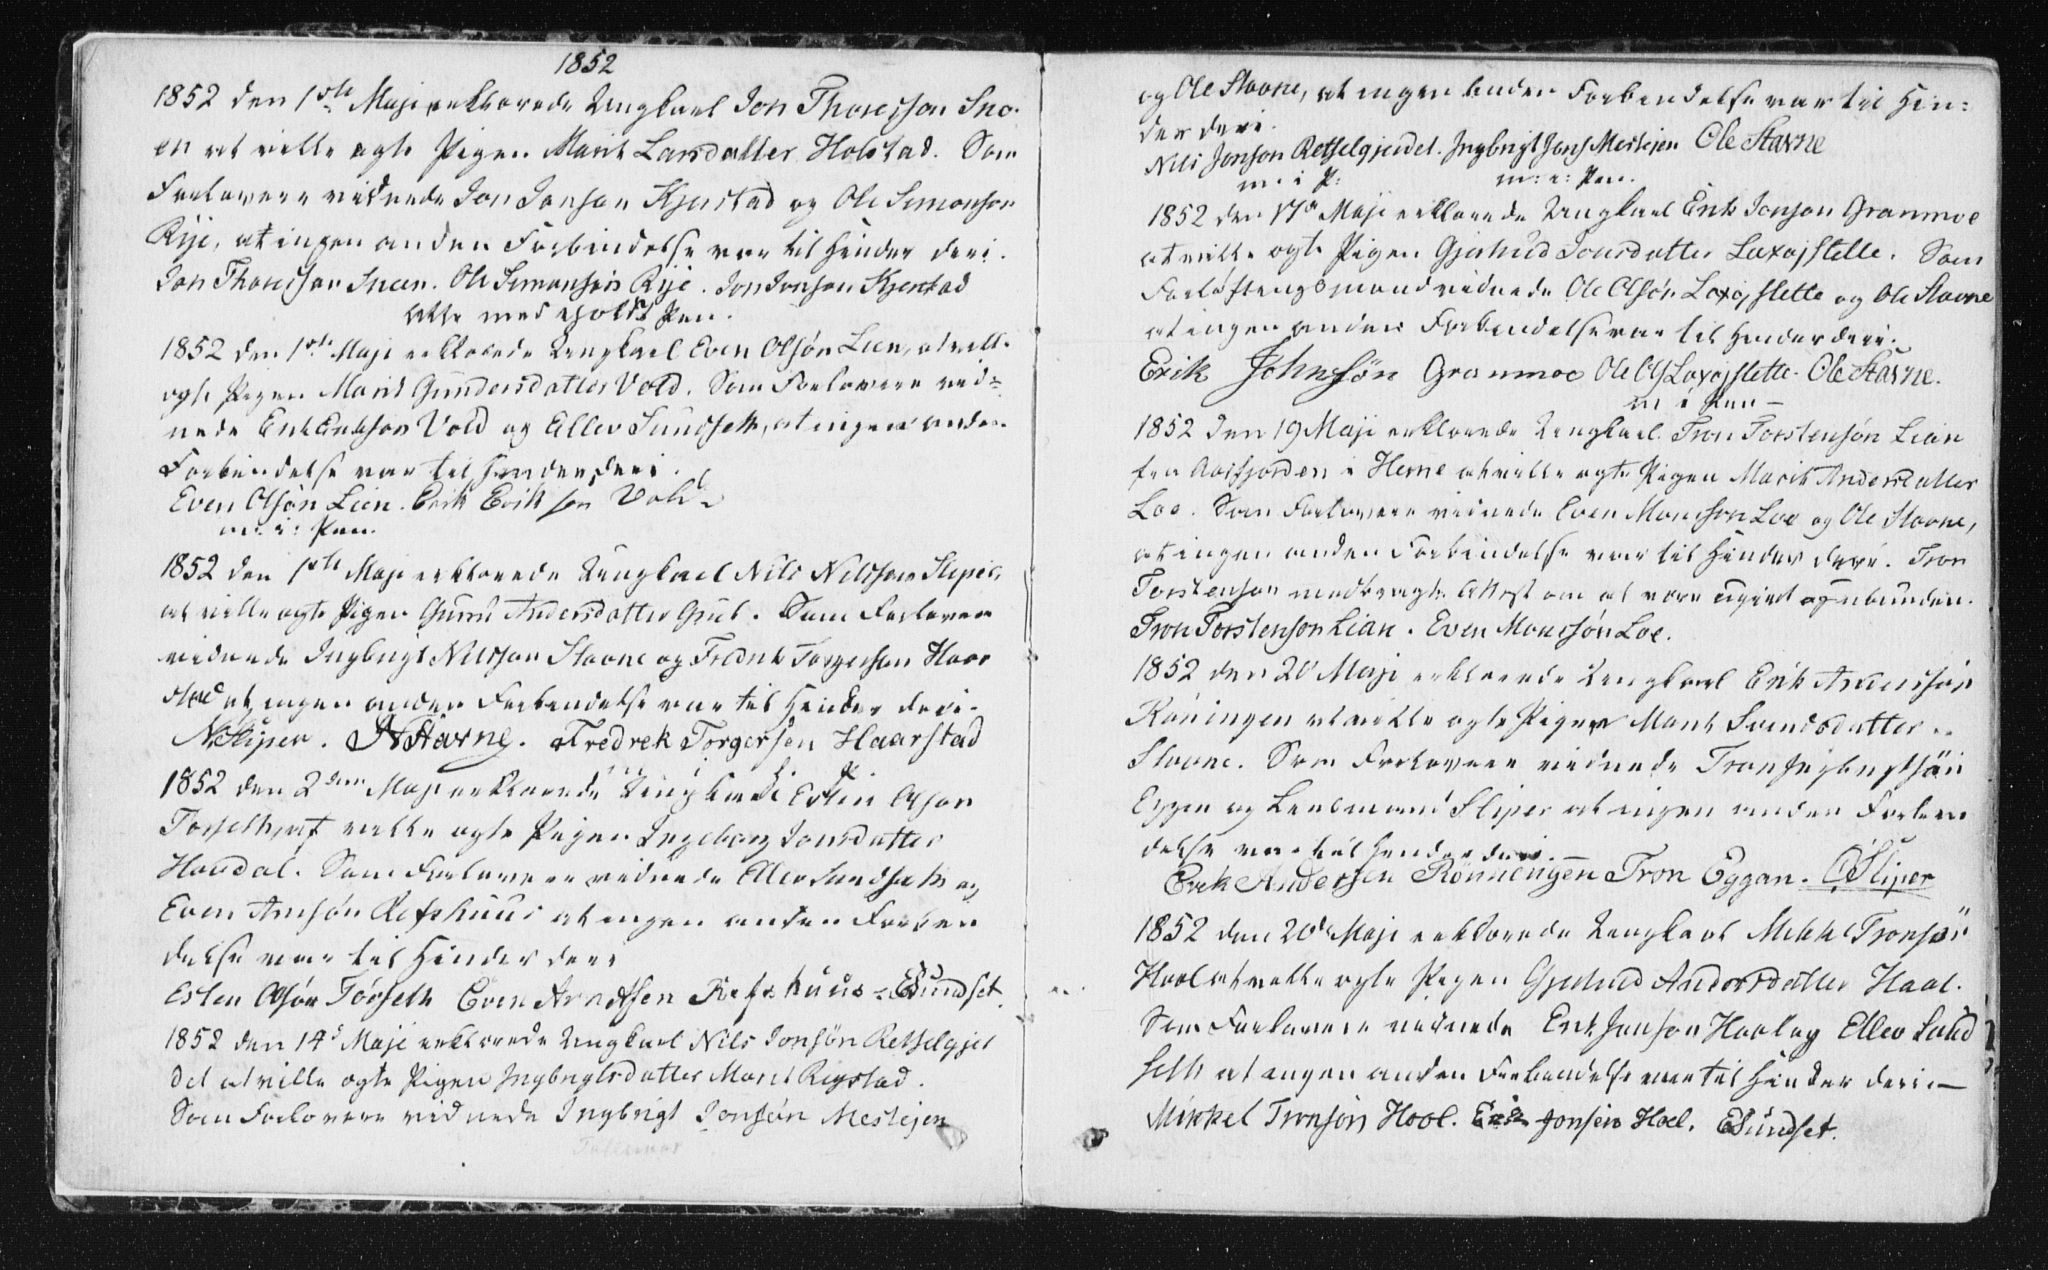 1852
1852 den 1ste Maji erklærede Ungkarl Jon Thoresson Sno-
en at ville ægte Pigen Marit Larsdatter Holstad. Som
Forlovere vidnede Jon Jonson Kjerstad og Ole Simonson
Rye, at ingen anden Forbindelse var til Hinder deri.
Jon Thoresson Snoen. Ole Simonsøn Rye. Jon Jonson Kjerstad
Alle med iholdt Pen.
1852 den 1ste Maji erklærede Ungkarl Even Olsøn Lien, at ville
ægte Pigen Marit Gundersdatter Vold. Som Forlovere vid-
nede Erik Erikson Vold og Ellev Sundseth, at ingen anden
Forbindelse var til Hinder deri.
Even Olsøn Lien. Erik Erikson Vold
m: i: Pen.
1852 den 1ste Maji erklærede Ungkarl Nils Nilsson Sliper,
at ville ægte Pigen Guru Andersdatter Grut. Som Forlovere
vidnede Ingbrigt Nilsson Stavne og Fredrik Torgerson Haar
stad at ingen anden Forbindelse var til Hinder deri.
N Sliper. Stavne. Fredrek Torgersen Haarstad
1852 den 2den Maji erklærede Ungkarl Esten Olson
Torseth, at ville ægte Pigen Ingeborg Jonsdatter
Houdal. Som Forlovere vidnede Ellev Sundseth og
Even Arnsøn Refshuus at ingen anden Forbin
delse var til Hinder deri
Esten Olsøn Torseth Even Arndtsen Refshuus - ESundset.
1852 den 14d Maji erklærede Ungkarl Nils Jonsøn Retselgjer
det at ville ægte Pigen Ingbrigtsdatter Marit Rigstad.
Som Forlovere vidnede Ingbrigt Jonsøn Meslejen
og Ole Stavne, at ingen anden Forbindelse var til Hin:
der deri.
Nils Jonson Retselgjerdet. Ingbrigt Jons Meslejen Ole Stavne
m: i P: m: i: Pen.
1852 den 17d Maji erklærede Ungkarl Erik Jonson Granmoe
at ville ægte Pigen Gjertrud Jonsdatter Laxøjstelle. Som
Forløftningsmænd vidnede Ole Olsøn Laxøjstette og Ole Stavne
at ingen anden Forbindelse var til Hinder deri.
Erik Johnsøn Granmoe Ole Ols Laxøjstette. Ole Stavne.
m i Pen
1852 Den 19 Maji erklærede Ungkarl Tron Torstensøn Lian
fra Rosfjorden i Hemne at ville ægte Pigen Marit Andersdatter
Loe. Som Forlovere vidnede Even Monsson Loe og Ole Stavne,
at ingen anden Forbindelse var til Hinder deri. Tron
Torstenson medbragte Attest om at være ugivt og ubunden.
Tron Torstenson Lian. Even Monssøn Loe.
1852 den 20 Maji erklærede Ungkarl Erik Andersøn
Røningen at ville ægte Pigen Marit Svendsdatter
Stavne. Som Forlovere vidnede Tron Ingbrigtsøn
Eggen og Lensmand Sliper at ingen anden Forbin
delse var til Hinder deri.
Erik Andersen Rönningen Tron Eggan. Sliper
1852 den 20de Maji erklærede Ungkarl Mikkel Tronsøn
Hool at ville ægte Pigen Gjertrud Andersdatter Haal.
Som Forlovere vidnede Erik Jonson Hool og Ellev Sund
seth at ingen anden Forbindelse var til Hinder deri -
Mikkel Tronsøn Hool. Erik Jonsen Hoel. ESundset.